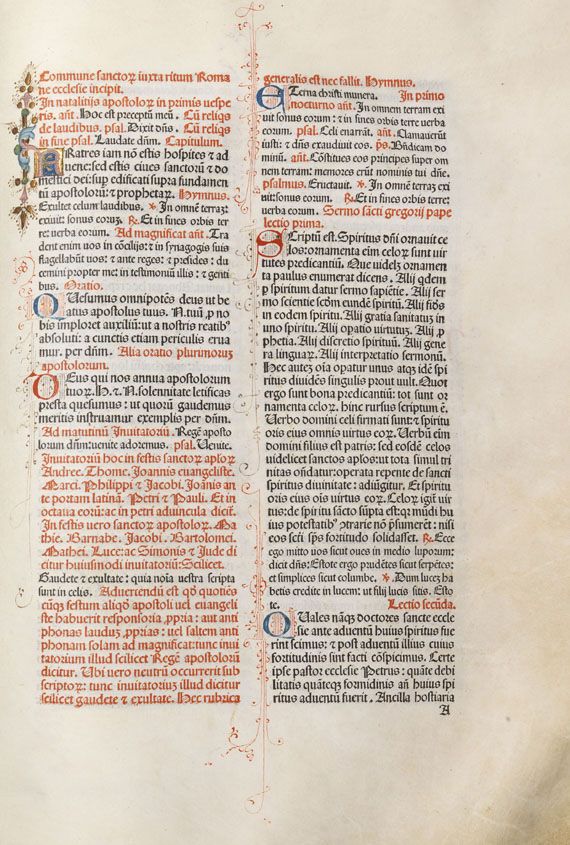 Commune sanctoꝝ iuxta ritum Roma
ne ecclesie incipit.
In natalitijs apostoloꝝ in primis uespe
ris. añt. Hoc est preceptũ meũ. Cũ reliq̃s
de laudibus. psal. Dixit dñs. Cũ reliq̃s
in fine psal. Laudate dñm. Capitulum.
FRatres iam nõ estis hospites ⁊ ad
uene: sed estis ciues sanctoꝝ ⁊ do
mestici dei: sup edificati supra fundamen
tũ apostoloꝝ ⁊ prophetaꝝ. Hymnus.
Exultet celum laudibus. ℣. In omnẽ terrã:
exiuit: sonus coꝝ. ℟. Et in fines orbis ter
re: uerba eorum. Ad magnificat añt. Tra
dent enim uos in cõcilijs: ⁊ in synagogis suis
flagellabũt uos: ⁊ ante reges: ⁊ presides: du
cemini propter me: in testimoniũ illis: ⁊ genti
bus. Oratio.
QUesumus omnipotẽs deus ut be
atus apostolus tuus. N. tuũ ꝓ no
bis imploret auxiliũ: ut a nostris reatibꝰ
absoluti: a cunctis etiam periculis erua
mur. per dñm. Alia oratio plurimorum
apostolorum.
DEus qui nos annua apostolorum
tuoꝝ. H. ⁊ N. solennitate letificas
presta quesumus: ut quorũ gaudemus
meritis instruamur exemplis per dñm.
Ad matutinũ Inuitatoriũ. Regẽ aposto
lorum dñm: uenite adoremus. psal. Uenite.
Inuitatoriũ hoc in festis sanctoꝝ aploꝝ
Andree. Thome. Joannis euangliste.
Marci. Philippi ⁊ Jacobi. Joãnis an
te portam latinã. Petri ⁊ Pauli. Et in
octaua eorũ: ac in petri aduincula dicit̃.
In festis uero sanctoꝝ apostoloꝝ. Ma
thie. Barnabe. Jacobi. Bartolomei.
Mathei. Luce: ac Simonis ⁊ Jude di
citur huiusmodi inuitatoriũ: Scilicet.
Gaudete ⁊ exultate: quia noĩa uestra scripta
sunt in celis. Aduertendũ est qd̃ quotiẽs
cũqꝫ festum aliqd̃ apostoli uel euangeli
ste habuerit responsoria ꝓpria: aut anti
phonas laudũ ꝓprias: uel saltem anti
phonam solam ad magnificat: tunc inui
tatorium illud scilicet Regẽ apostolorũ
dicitur. Ubi uero neutrũ occurrerit sub
scriptoꝝ: tunc inuitatoriũ illud dicitur
scilicet gaudete ⁊ exultate. Hec rubrica
generalis est nec fallit. Hymnus.
ETerna christi munera. In primo
nocturno añt. In omnem terram exi
uit sonus eorum: ⁊ in fines orbis terre uerba
eorum. psal. Celi enarrãt. añt. Clamauerũt
iusti: ⁊ dñs exaudiuit eos. ps. Bñdicam do
minũ. añt. Cõstitues eos principes super om
nem terram: memores erũt nominis tui dñe.
psalmus. Eructauit. ℣. In omnẽ terrã: exi
uit: sonus eorum. ℟. Et in fines orbis terre:
uerba eorum. Sermo sãcti gregorij pape
lectio prima.
SCriptũ est. Spiritus dñi ornauit ce
los: ornamenta eñim celoꝝ sunt uir
tutes predicantiũ. Que uidelꝫ ornamen
ta paulus enumerat dicens. Alij qdem
ꝑ spiritum datur sermo sapiẽtie. Alij ser
mo scientie scd̃m eundẽ spiritũ. Alij fides
in eodem spiritu. Alij gratia sanitatuꝫ in
uno spiritu. Alij opatio uirtutuꝫ. Alij ꝓ
phetia. Alij discretio spirituũ. Alij gene
ra linguaꝝ. Alij interpretatio sermonũ.
Hec autez oĩa opatur unus atqꝫ idẽ spi
ritus diuidẽs singulis prout uult. Quot
ergo sunt bona predicantiũ: tot sunt or
namenta celoꝝ. hinc rursus scriptum ẽ.
Uerbo domini celi firmati sunt: ⁊ spiritu
oris eius omnis uirtus eoꝝ. Uerbũ eñim
domini filius est patris: sed eosdẽ celos
uidelicet sanctos aplos: ut tota simul tri
nitas oñdatur: operata repente de sancti
spiritus diuinitate: adiũgitur. Et spiritu
oris eius oĩs uirtus eoꝝ. Celoꝝ igit̃ uir
tus: de spiritu sãcto sũpta est: qꝛ mũdi hu
ius potestatibꝰ ↄtrarie nõ p̃sumerẽt: nisi
eos scti sp̃s fortitudo solidasset. ℟. Ecce
ego mitto uos sicut oues in medio luporum:
dicit dñs: Estote ergo prudẽtes sicut serpẽtes:
et simplices sicut columbe. ℣. Dum lucẽꝫ ha
betis credite in lucem: ut filij lucis sitis. Esto
te. Lectio secũda.
QUales nãqꝫ doctores sancte eccle
sie ante aduentũ huius spiritus fue
rint scimus: ⁊ post aduentũ illius cuius
fortitudinis sint facti cõspicimus. Certe
ipse pastor ecclesie Petrus: quãte debi
litatis quãteqꝫ formidinis añ huius spi
ritus aduentũ fuerit. Ancilla hostiaria
A